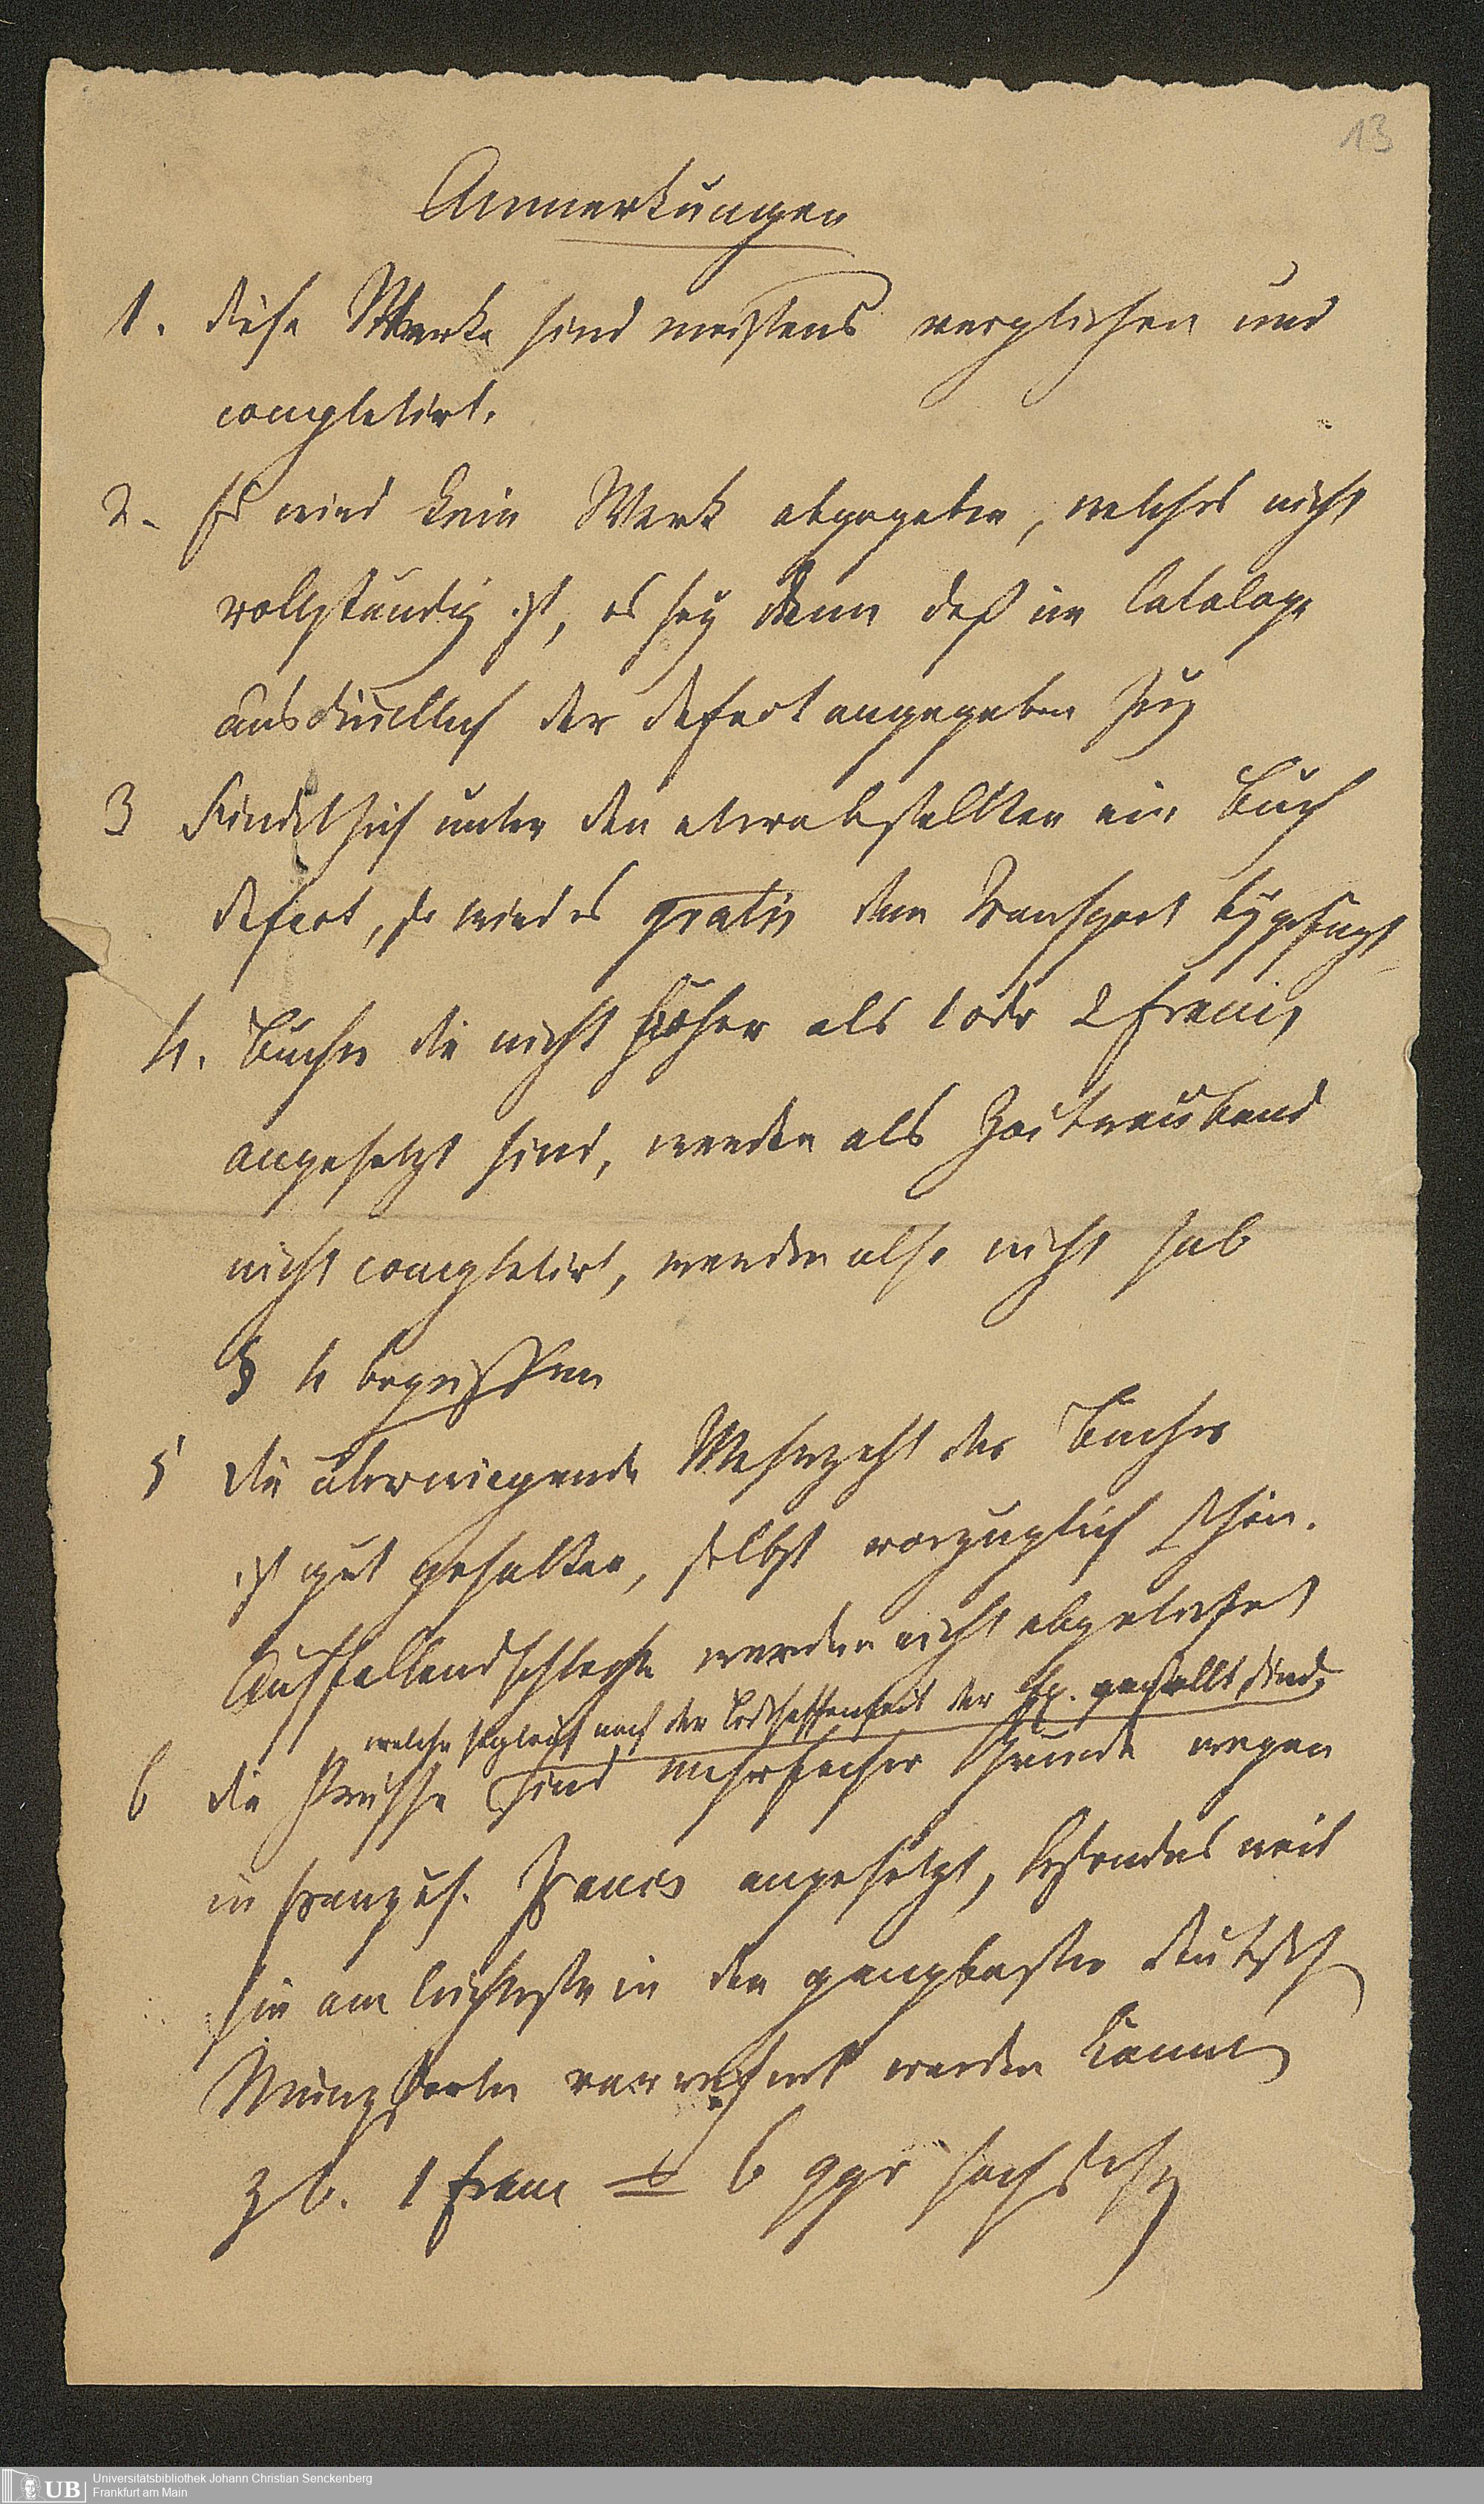 13
Anmerkungen
1. diese Werke sind meistens verglichen und
completirt.
2. Es wird kein Werk abgegeben, welches nicht
vollständig ist, es sey denn daß im Cataloge
ausdrücklich der Defect angegeben sey
3 Findet sich unter den etwa bestellten ein Buch
defect, so wird es gratis dem Transport beygefügt
4. Bücher die nicht höher als 1 oder 2 Francs
angesetzt sind, werden als Zeitraubend
nicht completirt, werden also nicht sub
§ 4 begriffen
5 die überwiegende Mehrzahl der Bücher
ist gut gehalten, selbst vorzüglich schön.
Auffallend schlechte werden nicht abgeliefert
welche sogleich nach der Beschaffenheit der Ex. gestellt sind,
6 die Preisse sind mehrfacher Gründe wegen
in französ. Francs angesetzt, besonders weil
sie am leichtesten in den gangbarsten deutsch
Münzsorten verrechnet werden können
z b. 1 Franc = 6 ggr sächsisch
UB
Universitätsbibliothek Johann Christian Senckenberg
Frankfurt am Main